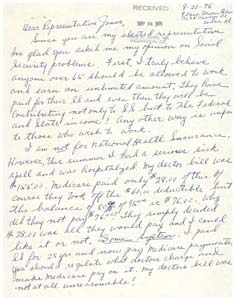 RECEIVED
SEP 24 1976
9-21-76
Dear Representative Jones,
Since you are my elected representative
I'm glad you asked me my opinion on Social
Security problems. First, I truly believe
anyone over 65 should be allowed to work
and earn an unlimited amount. They have
paid for their SS and even then they will be
contributing not only to SS but to The Federal
and State income! Any other way is unfair
to those who wish to work.
I am not for National Health Insurance.
However this summer I had a serious sick
spell and was hospitalized. My doctor bill was
$155.00. Medicare paid only $28.00 of this. Of
course they took off the $60.00 deductible but
the balance of 95 is $76.00. Why
did they not pay $76.00? They simply decided
$28.00 was all they would pay and I could
like it or not. Some system. I paid
SS for 25 yrs and now pay Medicare payments.
You should regulate what doctors charge and
make Medicare pay on it. My doctors bill was
not at all unreasonable!